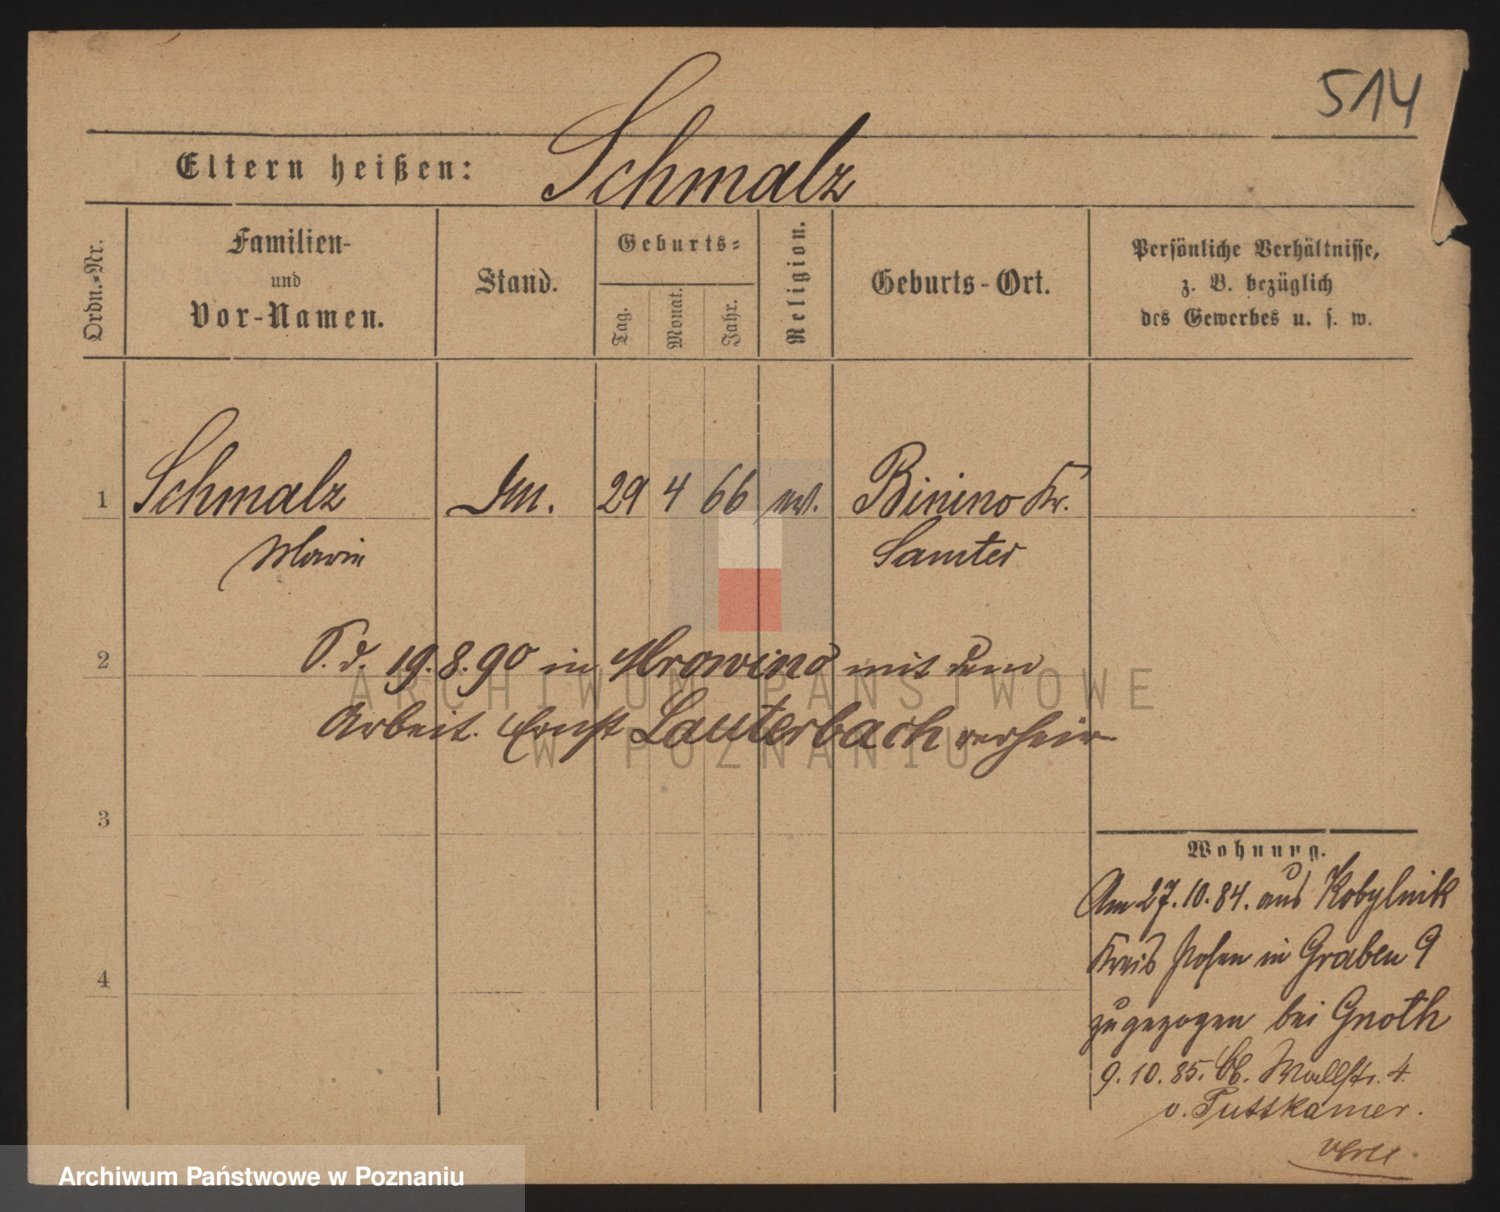 514
Eltern heißen: Schmalz
Ordn.-Nr.
Familien-
und
Vor-Namen.
Stand.
Geburts-
Tag.
Monat.
Jahr.
Religion.
Geburts-Ort.
Persönliche Verhältnisse,
z. B. bezüglich
des Gewerbes u. s. w.
1 Schmalz 29 4 66 ev. Binino Kr.
Marie Samter
2 d. 19.8.90 in Mrowino mit dem
ARCHIWUM PAŃSTWOWE
Arbeit. Ernst Lauterbach verheir.
W POZNANIU
3
Wohnung.
Am 27.10.84. aus Kobylnik
Kreis Posen in Graben 9
4
zugezogen bei Gnoth
9.10.85. Wallstr. 4.
v. Puttkamer.
Archiwum Państwowe w Poznaniu